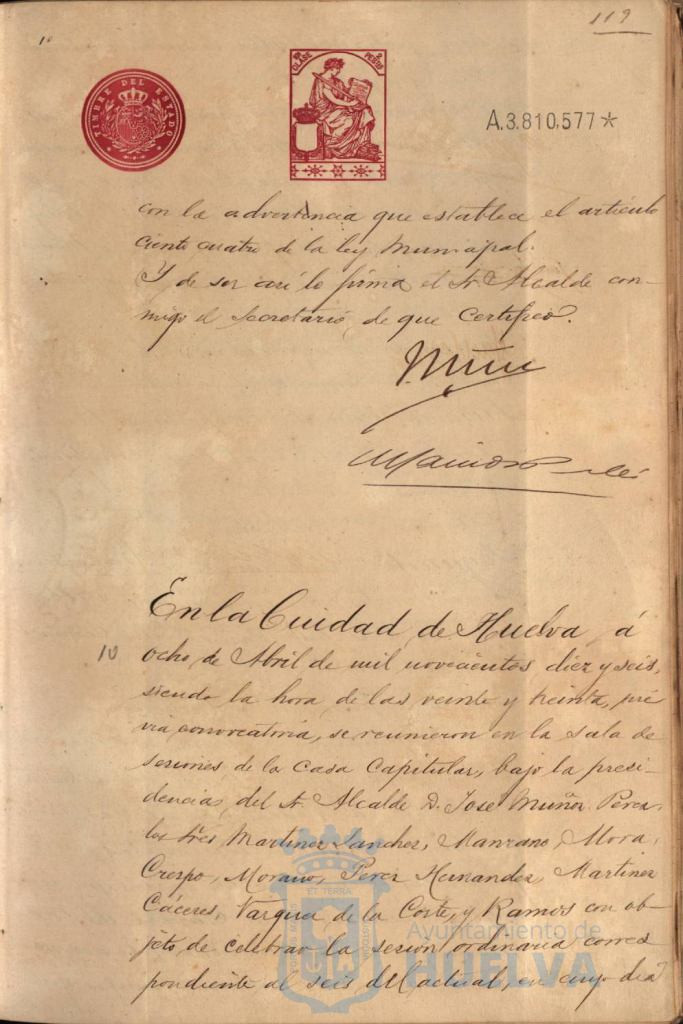 119
10
TIMBRE DEL ESTADO
CLASE
PESETAS
A.3.810,577*
con la advertencia que establece el artículo
ciento cuatro de la ley Municipal.
Y de ser así lo firma el Sr. Alcalde con-
migo el Secretario, de que Certifico.
En la Ciudad de Huelva, á
10
ocho de Abril de mil novecientos diez y seis,
siendo la hora de las veinte y treinta, pré
via convocatoria, se reunieron en la sala de
sesiones de la Casa Capitular, bajo la presi-
dencia, del Sr. Alcalde D. José Muñoz Perez,
los Sres Martinez Sanchez, Manzano, Mora,
Crespo, Morano, Perez Hernandez, Martinez
Cáceres, Vazquez de la Corte, y Ramos con ob-
jeto, de celebrar la sesion ordinaria corres
pondiente al seis del actual, en cuyo dia
ET TERRA
Ayuntamiento de
HUELVA